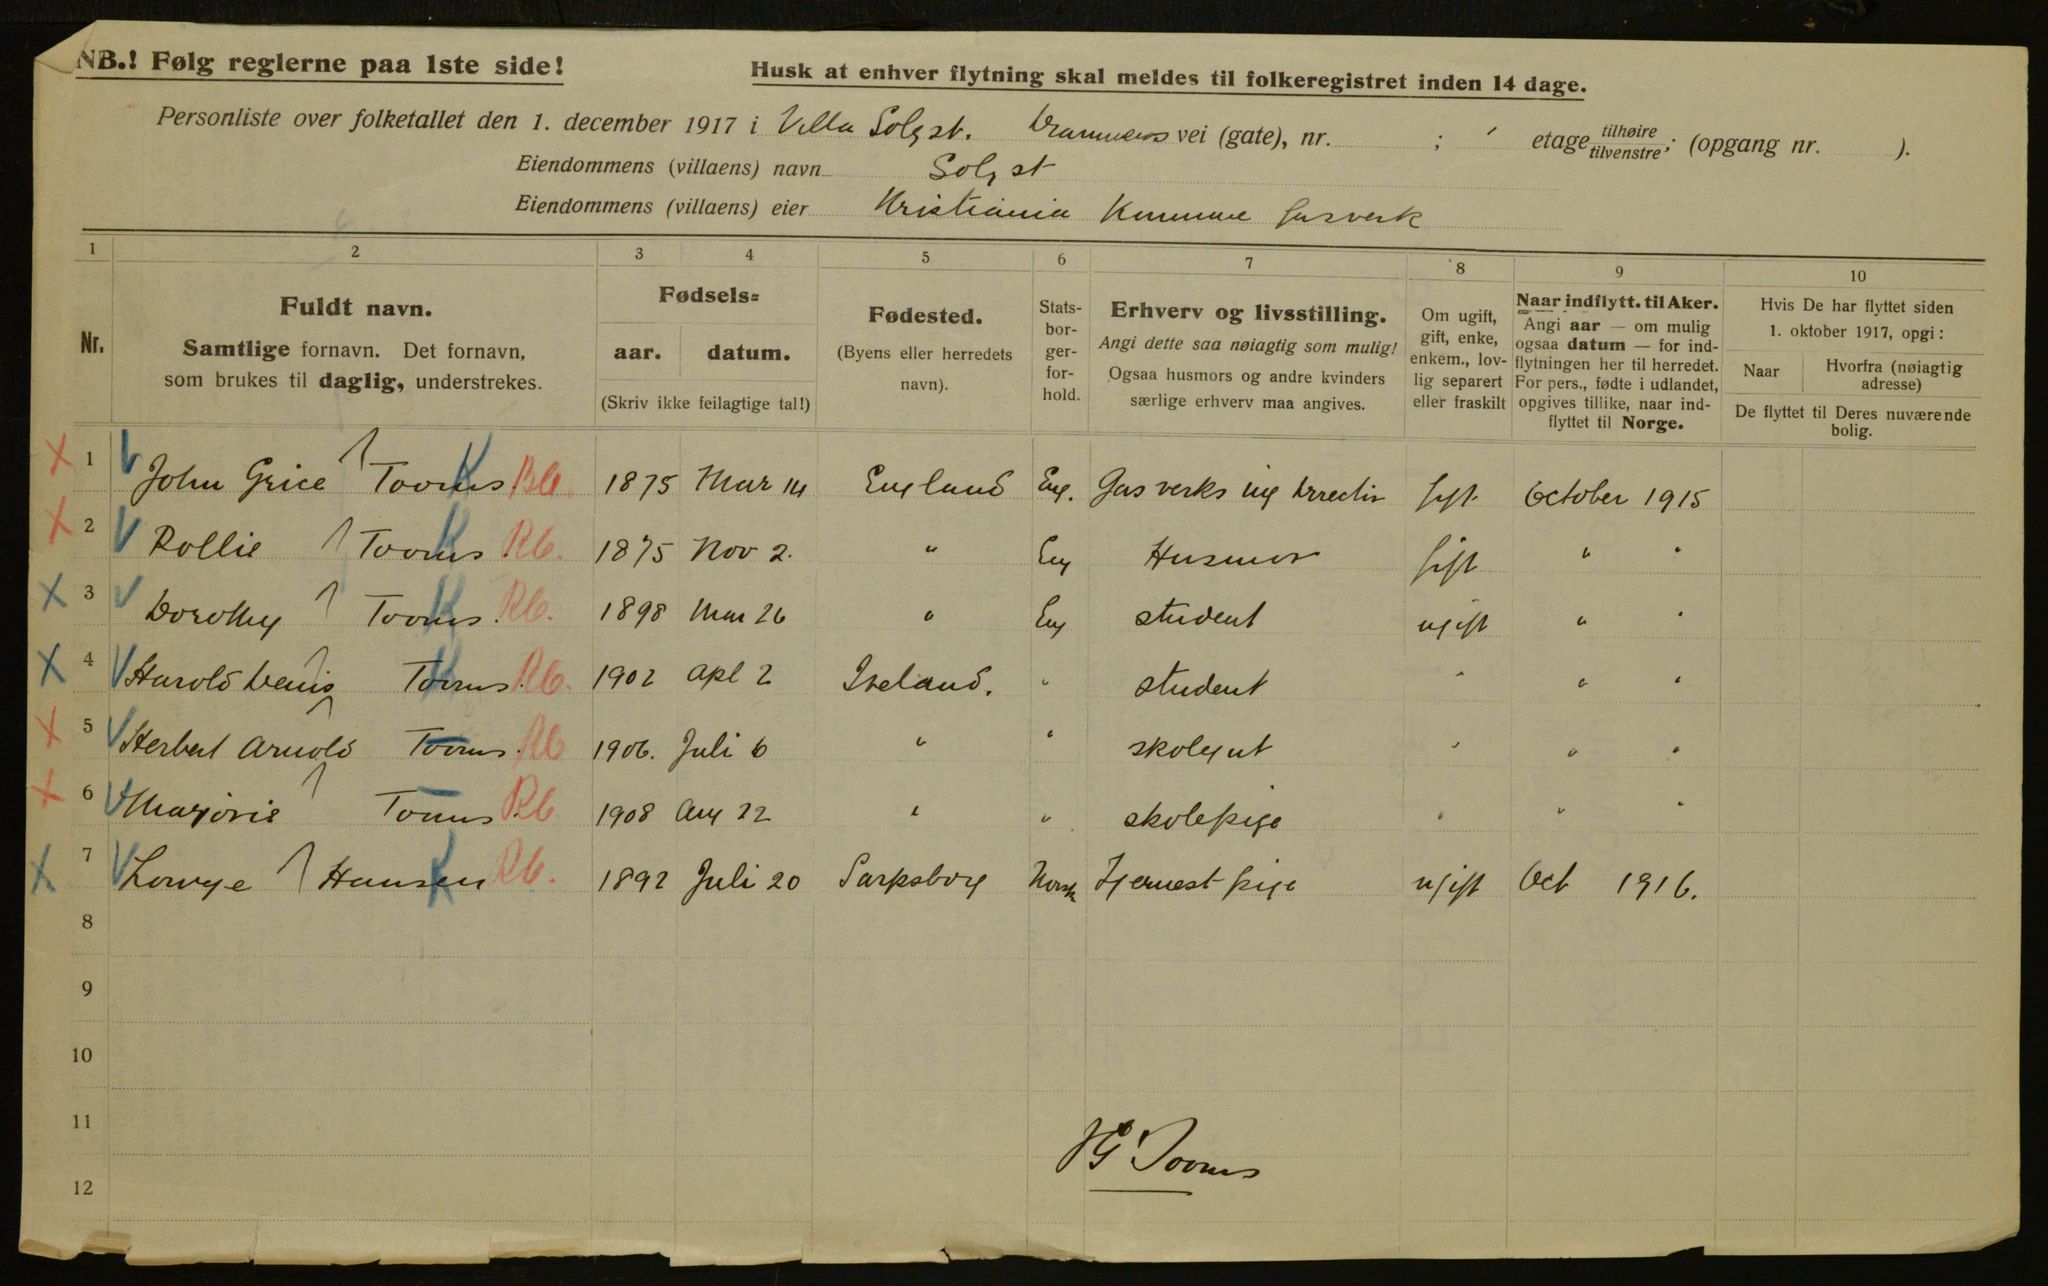 NB.! Følg reglerne paa 1ste side!
Husk at enhver flytning skal meldes til folkeregistret inden 14 dage.
Personliste over folketallet den 1. december 1917 i Villa Solyst. Drammens vei (gate), nr. ; etage tilhøire tilvenstre; (opgang nr. ).
Eiendommens (villaens) navn Solyst
Eiendommens (villaens) eier Kristiania Kommune Gasverk
1 2 3 4 5 6 7 8 9 10
Nr.
Fuldt navn.
Samtlige fornavn. Det fornavn,
som brukes til daglig, understrekes.
Fødsels=
aar. datum.
(Skriv ikke feilagtige tal!)
Fødested.
(Byens eller herredets
navn).
Stats-
bor-
ger-
for-
hold.
Erhverv og livsstilling.
Angi dette saa nøiagtig som mulig!
Ogsaa husmors og andre kvinders
særlige erhverv maa angives.
Om ugift,
gift, enke,
enkem., lov-
lig separert
eller fraskilt
Naar indflytt. til Aker.
Angi aar — om mulig
ogsaa datum — for ind-
flytningen her til herredet.
For pers., fødte i udlandet,
opgives tillike, naar ind-
flyttet til Norge.
Hvis De har flyttet siden
1. oktober 1917, opgi:
Naar
Hvorfra (nøiagtig
adresse)
De flyttet til Deres nuværende
bolig.
1 John Grice Tooms 1875 Mar 14 England Eng. Gasverks ing Direcktir gift October 1915
2 Rollie Tooms Rb. 1875 Nov 2. " Eng Husmor gift " "
3 Dorothy Tooms Rb. 1898 Mar 26 " Eng student ugift " "
4 Harold Denis Tooms Rb. 1902 Apl 2 Ireland. " student " " "
5 Herbert Arnold Tooms Rb 1906. Juli 6 " " skolegut " " "
6 Marjorie Tooms Rb 1908 Aug 22 " " skolepige " " "
7 Lovise Hansen Rb. 1892 Juli 20 Sarpsborg Norsk Tjenestpige ugift Oct 1916.
8
9
10
11
12
JG Tooms